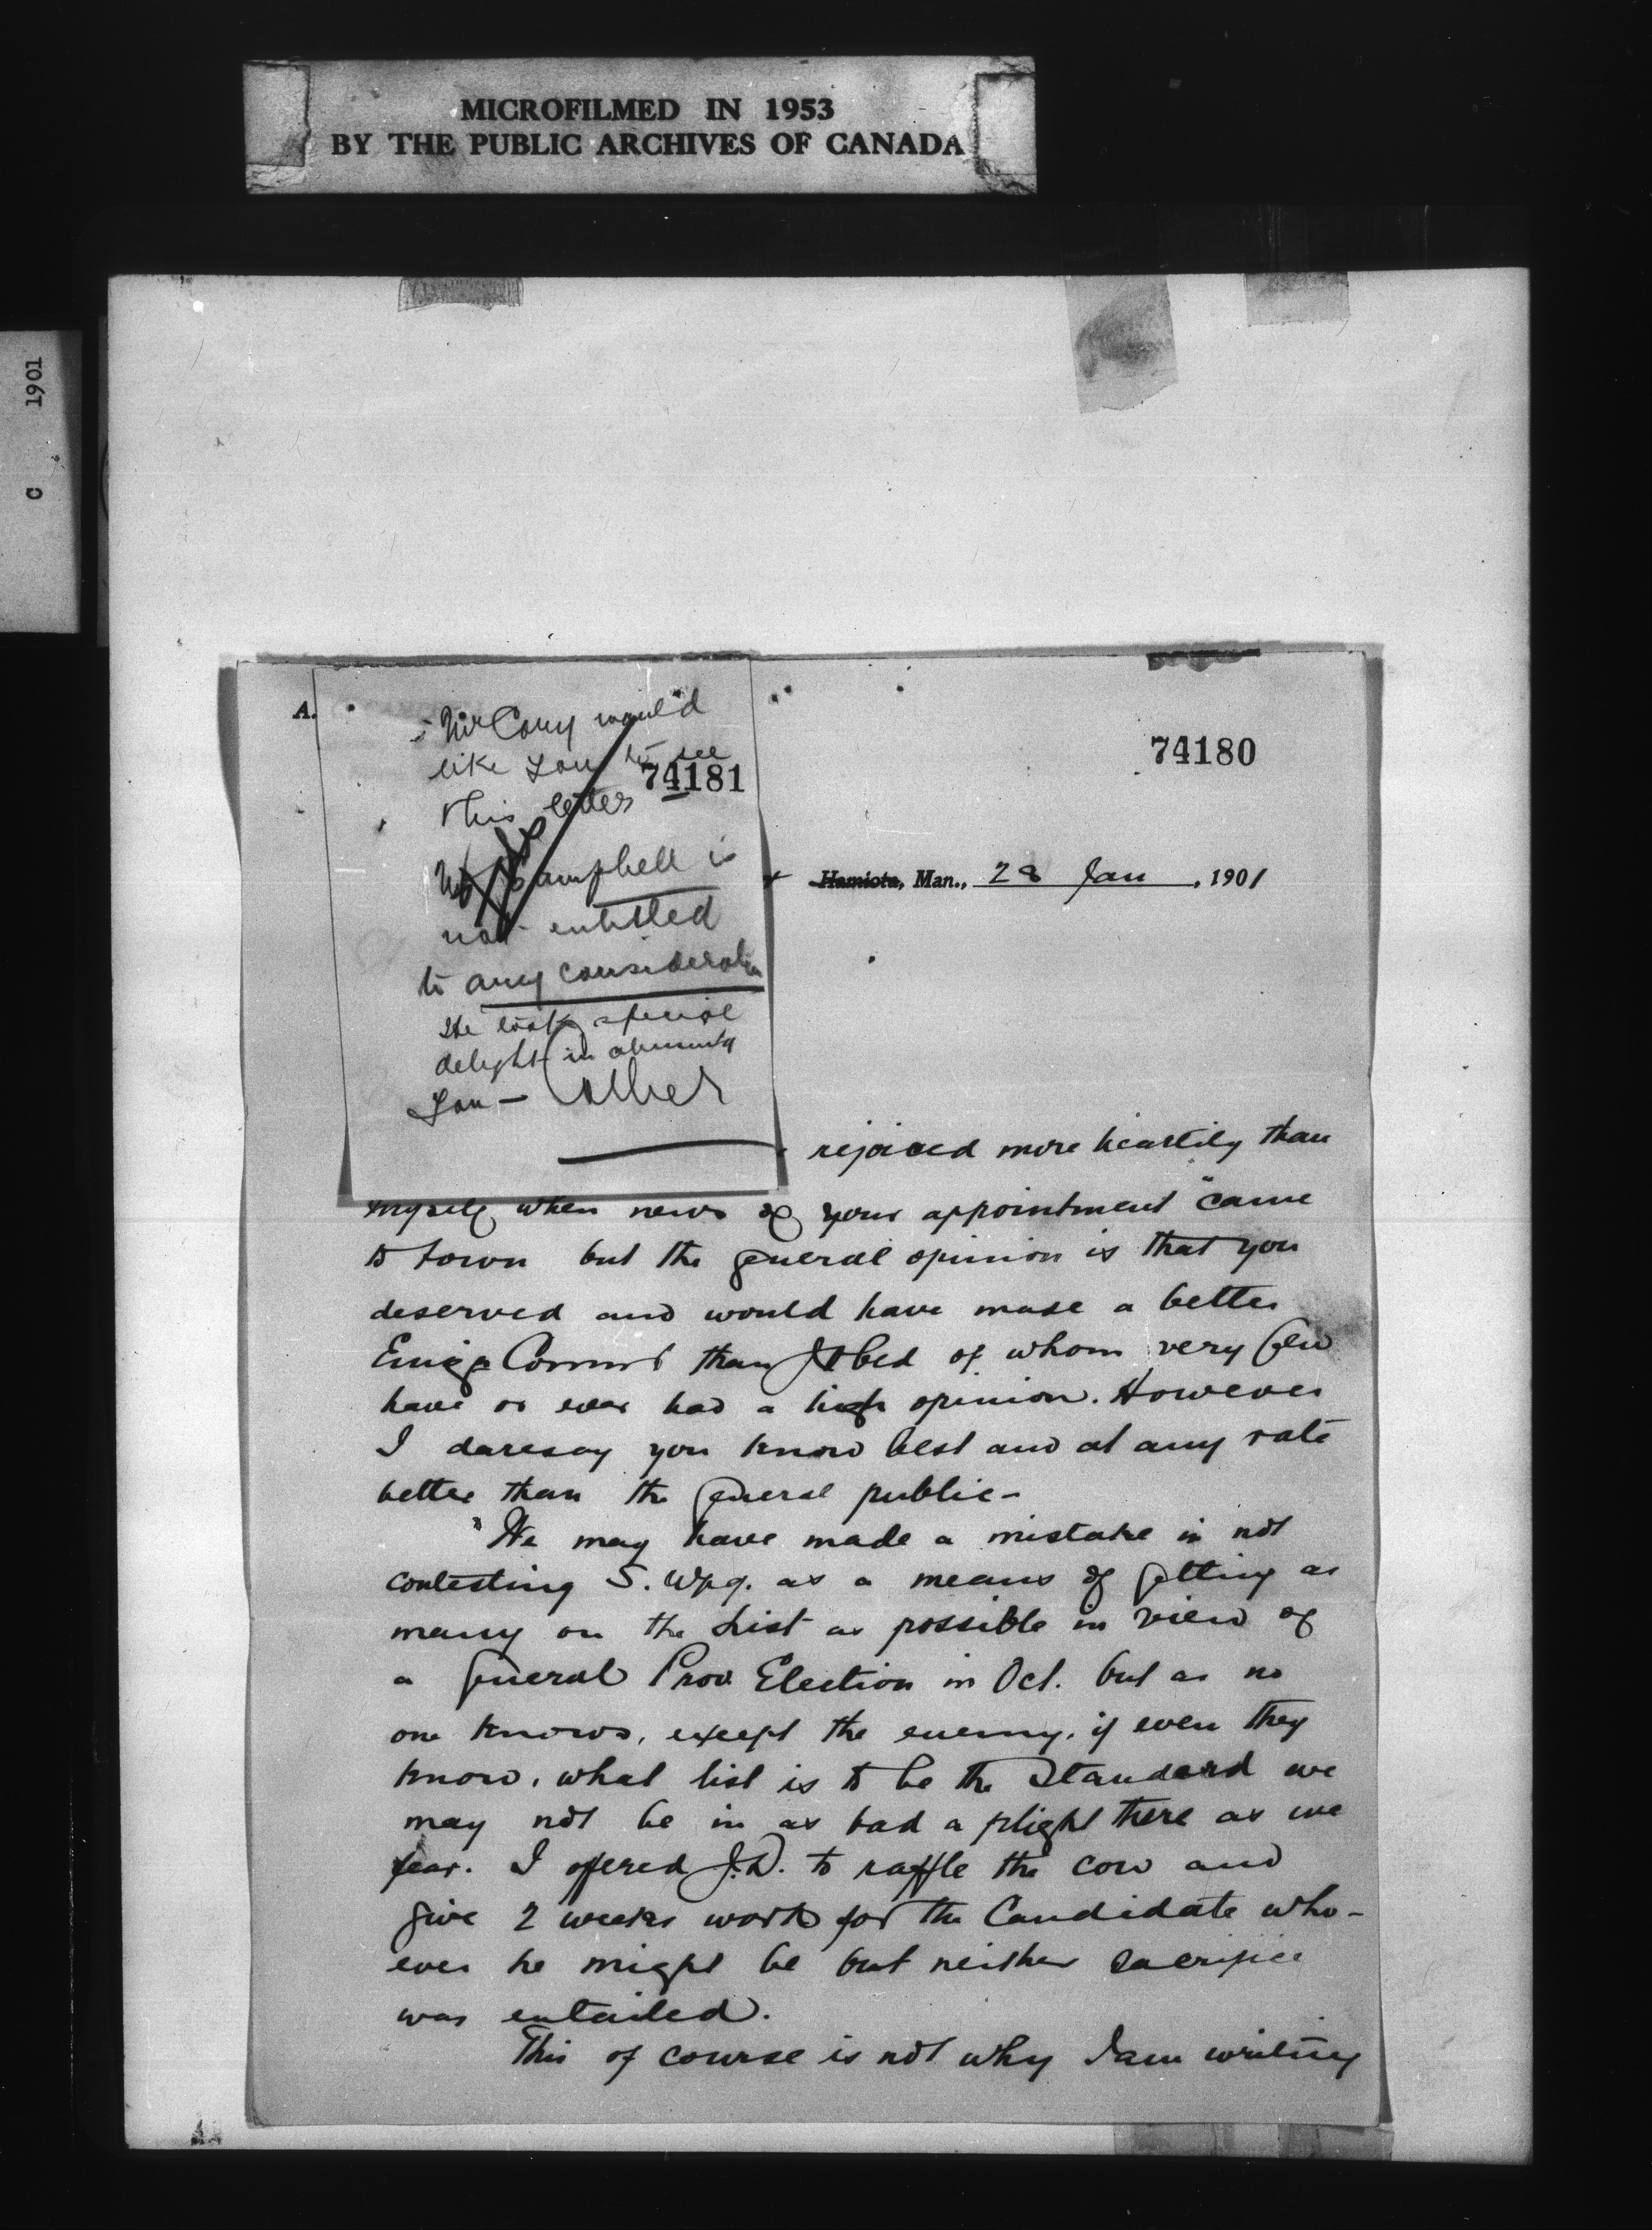 MICROFILMED IN 1953
BY THE PUBLIC ARCHIVES OF CANADA
C 1901
A.
Mr Cory would
like you to see
this letter
74181
Campbell is
not entitled
to any consideration
He took special
delight in abusing
you —
74180
Hamiota, Man., 28 Jan, 1901
rejoiced more heartily than
myself when news of your appointment came
to town but the general opinion is that you
deserved and would have made a better
Emig Commr than of whom very few
have or ever had a high opinion. However
I daresay you know best and at any rate
better than the general public -
We may have made a mistake in not
contesting S. Wpg. as a means of getting as
many on the List as possible in view of
a general Prov. Election in Oct. but as no
one knows, except the enemy, if even they
know, what list is to be the Standard we
may not be in as bad a plight there as we
fear. I offered J.D. to raffle the cow and
give 2 weeks work for the Candidate who-
ever he might be but neither sacrifice
was entailed.
This of course is not why I am writing